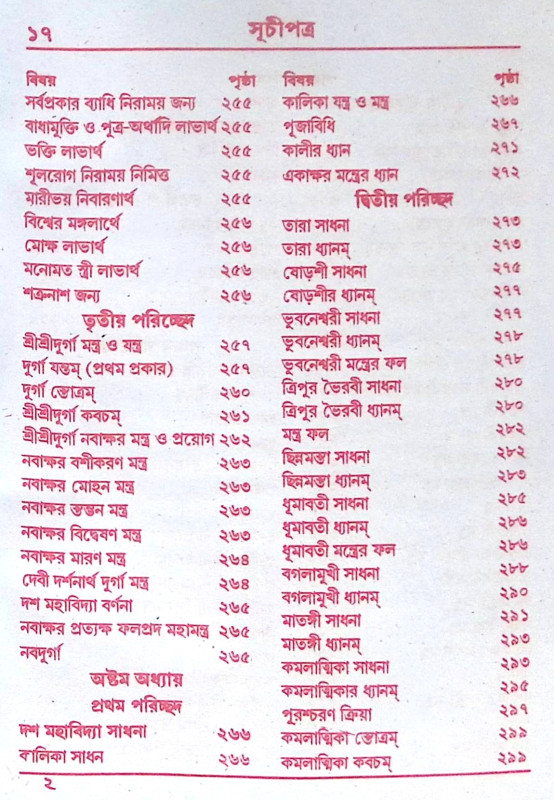 ১৭ সূচীপত্র
বিষয় পৃষ্ঠা
সর্বপ্রকার ব্যাধি নিরাময় জন্য ২৫৫
বাধামুক্তি ও পুত্র-অর্থাদি লাভার্থ ২৫৫
ভক্তি লাভার্থ ২৫৫
শূলরোগ নিরাময় নিমিত্ত ২৫৫
মারীভয় নিবারণার্থ ২৫৫
বিশ্বের মঙ্গলার্থে ২৫৬
মোক্ষ লাভার্থ ২৫৬
মনোমত স্ত্রী লাভার্থ ২৫৬
শত্রুনাশ জন্য ২৫৬
তৃতীয় পরিচ্ছেদ
শ্রীশ্রীদুর্গা মন্ত্র ও যন্ত্র ২৫৭
দুর্গা যন্তম্ (প্রথম প্রকার) ২৫৭
দুর্গা স্তোত্রম্ ২৬০
শ্রীশ্রীদুর্গা কবচম্ ২৬১
শ্রীশ্রীদুর্গা নবাক্ষর মন্ত্র ও প্রয়োগ ২৬২
নবাক্ষর বশীকরণ মন্ত্র ২৬৩
নবাক্ষর মোহন মন্ত্র ২৬৩
নবাক্ষর স্তম্ভন মন্ত্র ২৬৩
নবাক্ষর বিদ্বেষণ মন্ত্র ২৬৩
নবাক্ষর মারণ মন্ত্র ২৬৪
দেবী দর্শনার্থ দুর্গা মন্ত্র ২৬৪
দশ মহাবিদ্যা বর্ণনা ২৬৫
নবাক্ষর প্রত্যক্ষ ফলপ্রদ মহামন্ত্র ২৬৫
নবদুর্গা ২৬৫
অষ্টম অধ্যায়
প্রথম পরিচ্ছদ
দশ মহাবিদ্যা সাধনা ২৬৬
কালিকা সাধন ২৬৬
২
বিষয় পৃষ্ঠা
কালিকা যন্ত্র ও মন্ত্র ২৬৬
পূজাবিধি ২৬৭
কালীর ধ্যান ২৭১
একাক্ষর মন্ত্রের ধ্যান ২৭২
দ্বিতীয় পরিচ্ছদ
তারা সাধনা ২৭৩
তারা ধ্যানম্ ২৭৩
ষোড়শী সাধনা ২৭৫
ষোড়শীর ধ্যানম্ ২৭৭
ভুবনেশ্বরী সাধনা ২৭৭
ভুবনেশ্বরী ধ্যানম্ ২৭৮
ভুবনেশ্বরী মন্ত্রের ফল ২৭৮
ত্রিপুর ভৈরবী সাধনা ২৮০
ত্রিপুর ভৈরবী ধ্যানম্ ২৮০
মন্ত্র ফল ২৮২
ছিন্নমস্তা সাধনা ২৮২
ছিন্নমস্তা ধ্যানম্ ২৮৩
ধূমাবতী সাধনা ২৮৫
ধূমাবতী ধ্যানম্ ২৮৬
ধূমাবতী মন্ত্রের ফল ২৮৬
বগলামুখী সাধনা ২৮৮
বগলামুখী ধ্যানম্ ২৯০
মাতঙ্গী সাধনা ২৯১
মাতঙ্গী ধ্যানম্ ২৯৩
কমলাত্মিকা সাধনা ২৯৩
কমলাত্মিকার ধ্যানম্ ২৯৫
পুরশ্চরণ ক্রিয়া ২৯৭
কমলাত্মিকা স্তোত্রম্ ২৯৯
কমলাত্মিকা কবচম্ ২৯৯